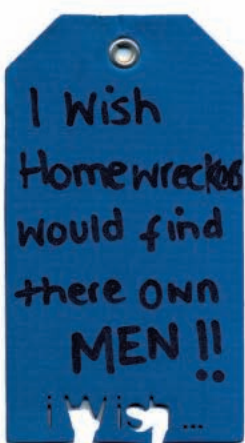 I Wish
Homewreckers
would find
there OWN
MEN !!
i Wish ...